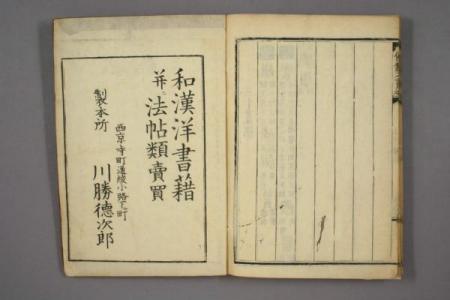 和漢洋書籍
并ニ法帖類賣買
西京寺町通綾小路下町
製本所
川勝德次郎